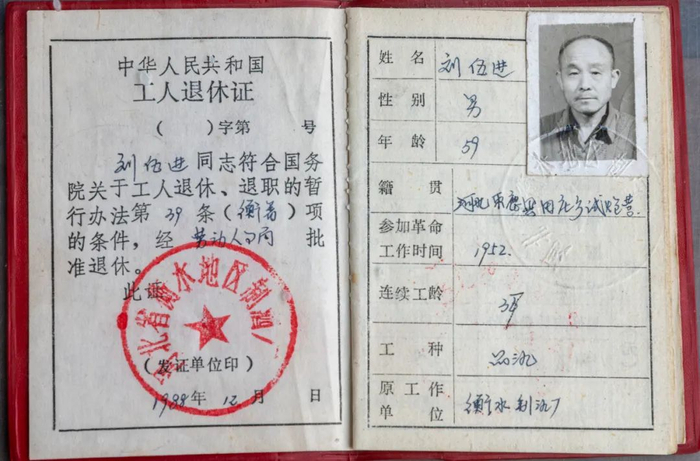 中华人民共和国
工人退休证
( )字第 号
刘伍进同志符合国务
院关于工人退休、退职的暂
行办法第 39 条( )项
的条件，经 劳动人事局 批
准退休。
此证
河北省衡水地区制酒厂
(发证单位印)
1988年12月 日
姓名 刘伍进
性别 男
年龄 59
籍贯 河北
参加革命
工作时间 1952.
连续工龄
工种
原工作
单位 衡水制酒厂